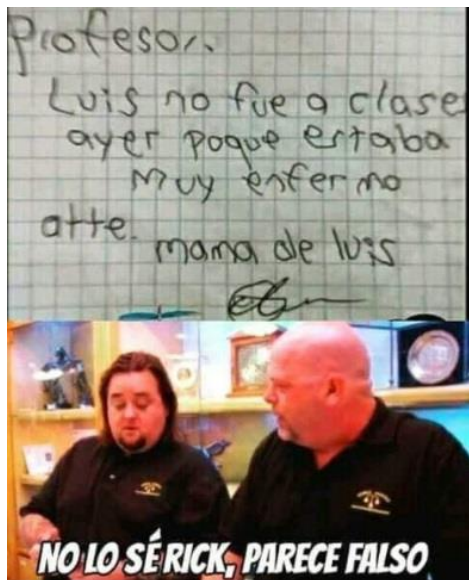 Profesor.
Luis no fue a clases
ayer poque estaba
Muy enfermo
atte.
mama de luis
NO LO SÉ RICK, PARECE FALSO